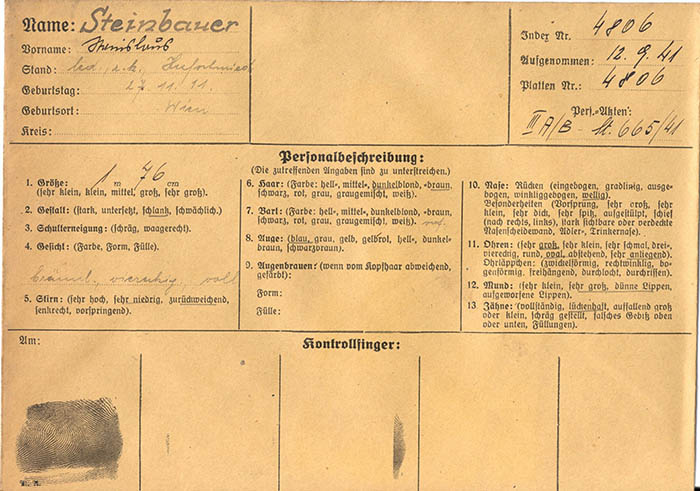 Name: Steinbauer
Vorname: Stanislaus
Stand: led., r.k., Hufschmied
Geburtstag: 27. 11. 91.
Geburtsort: Wien
Kreis:
Index Nr. 4806
Aufgenommen: 12. 9. 41
Platten Nr.: 4806
Pers.-Akten:
III A/B - St. 665/41
Personalbeschreibung:
(Die zutreffenden Angaben sind zu unterstreichen.)
1. Größe: 1 m 76 cm
(sehr klein, klein, mittel, groß, sehr groß).
2. Gestalt: (stark, untersetzt, schlank, schwächlich.)
3. Schulterneigung: (schräg, waagerecht.)
4. Gesicht: (Farbe, Form, Fülle).
voll
5. Stirn: (sehr hoch, sehr niedrig, zurückweichend,
senkrecht, vorspringend).
6. Haar: (Farbe: hell-, mittel-, dunkelblond, -braun,
schwarz, rot, grau, graugemischt, weiß).
7. Bart: (Farbe: hell-, mittel-, dunkelblond, -braun,
schwarz, rot, grau, graugemischt, weiß).
8. Auge: (blau, grau, gelb, gelbrot, hell-, dunkel-
braun, schwarzbraun).
9. Augenbrauen: (wenn vom Kopfhaar abweichend,
gefärbt):
Form:
Fülle:
10. Nase: Rücken (eingebogen, gradlinig, ausge-
bogen, winkliggebogen, wellig).
Besonderheiten (Vorsprung, sehr groß, sehr
klein, sehr dick, sehr spitz, aufgestülpt, schief
(nach rechts, links), stark sichtbare oder verdeckte
Nasenscheidewand, Adler-, Trinkernase).
11. Ohren: (sehr groß, sehr klein, sehr schmal, drei-,
viereckig, rund, oval, abstehend, sehr anliegend).
Ohrläppchen: (zwickelförmig, rechtwinklig, bo-
genförmig, freihängend, durchlocht, durchrissen).
12. Mund: (sehr klein, sehr groß, dünne Lippen,
aufgeworfene Lippen).
13. Zähne: (vollständig, lückenhaft, auffallend groß
oder klein, schräg gestellt, falsches Gebiß oben
oder unten, Füllungen).
Am:
Kontrollfinger: